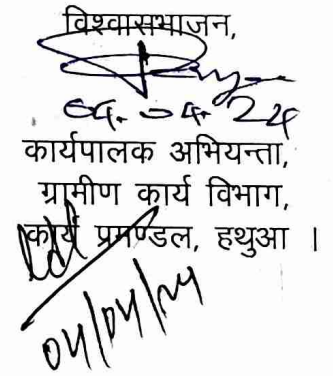 विश्वासभाजन,
04.04.24
कार्यपालक अभियन्ता,
ग्रामीण कार्य विभाग,
कार्य प्रमण्डल, हथुआ ।
04/04/24